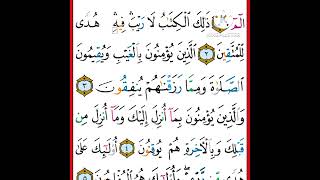 الٓمٓ ۝١ ذَٰلِكَ ٱلْكِتَٰبُ لَا رَيْبَ ۛ فِيهِ ۛ هُدًى
لِّلْمُتَّقِينَ ۝٢ ٱلَّذِينَ يُؤْمِنُونَ بِٱلْغَيْبِ وَيُقِيمُونَ
ٱلصَّلَوٰةَ وَمِمَّا رَزَقْنَٰهُمْ يُنفِقُونَ ۝٣
وَٱلَّذِينَ يُؤْمِنُونَ بِمَآ أُنزِلَ إِلَيْكَ وَمَآ أُنزِلَ مِن
قَبْلِكَ وَبِٱلْـَٔاخِرَةِ هُمْ يُوقِنُونَ ۝٤ أُو۟لَٰٓئِكَ عَلَىٰ
هُدًى مِّن رَّبِّهِمْ ۖ وَأُو۟لَٰٓئِكَ هُمُ ٱلْمُفْلِحُونَ ۝٥